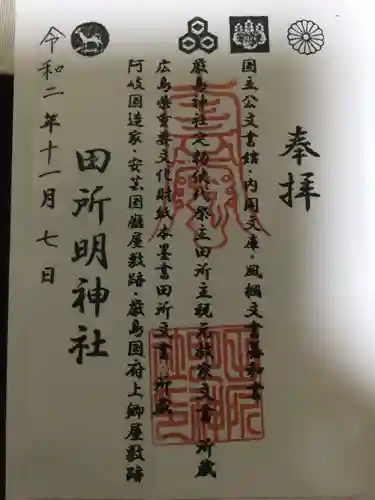 奉拝
国立公文書館・内閣文庫・風損文書落札書
厳島神社定初供代祭主田所主祝元教家文書所蔵
広島県重要文化財紙本墨書田所文書所蔵
阿岐国造家・安芸国廰屋敷跡・厳島国府上卿屋敷跡
田所明神社
令和二年十一月七日